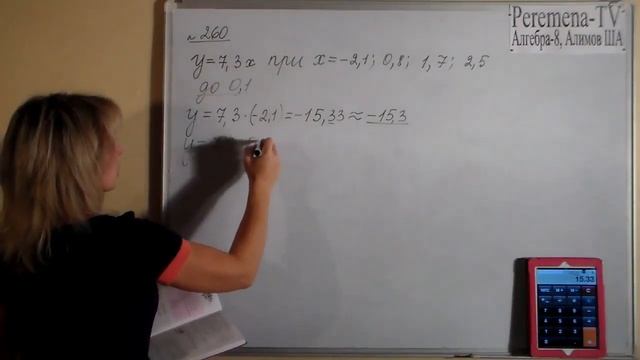 Peremena-TV
Алгебра-8, Алимов ША
№ 260
y = 7,3x при x = -2,1; 0,8; 1,7; 2,5
до 0,1
y = 7,3 · (-2,1) = -15,33 ≈ -15,3
y =
15.33